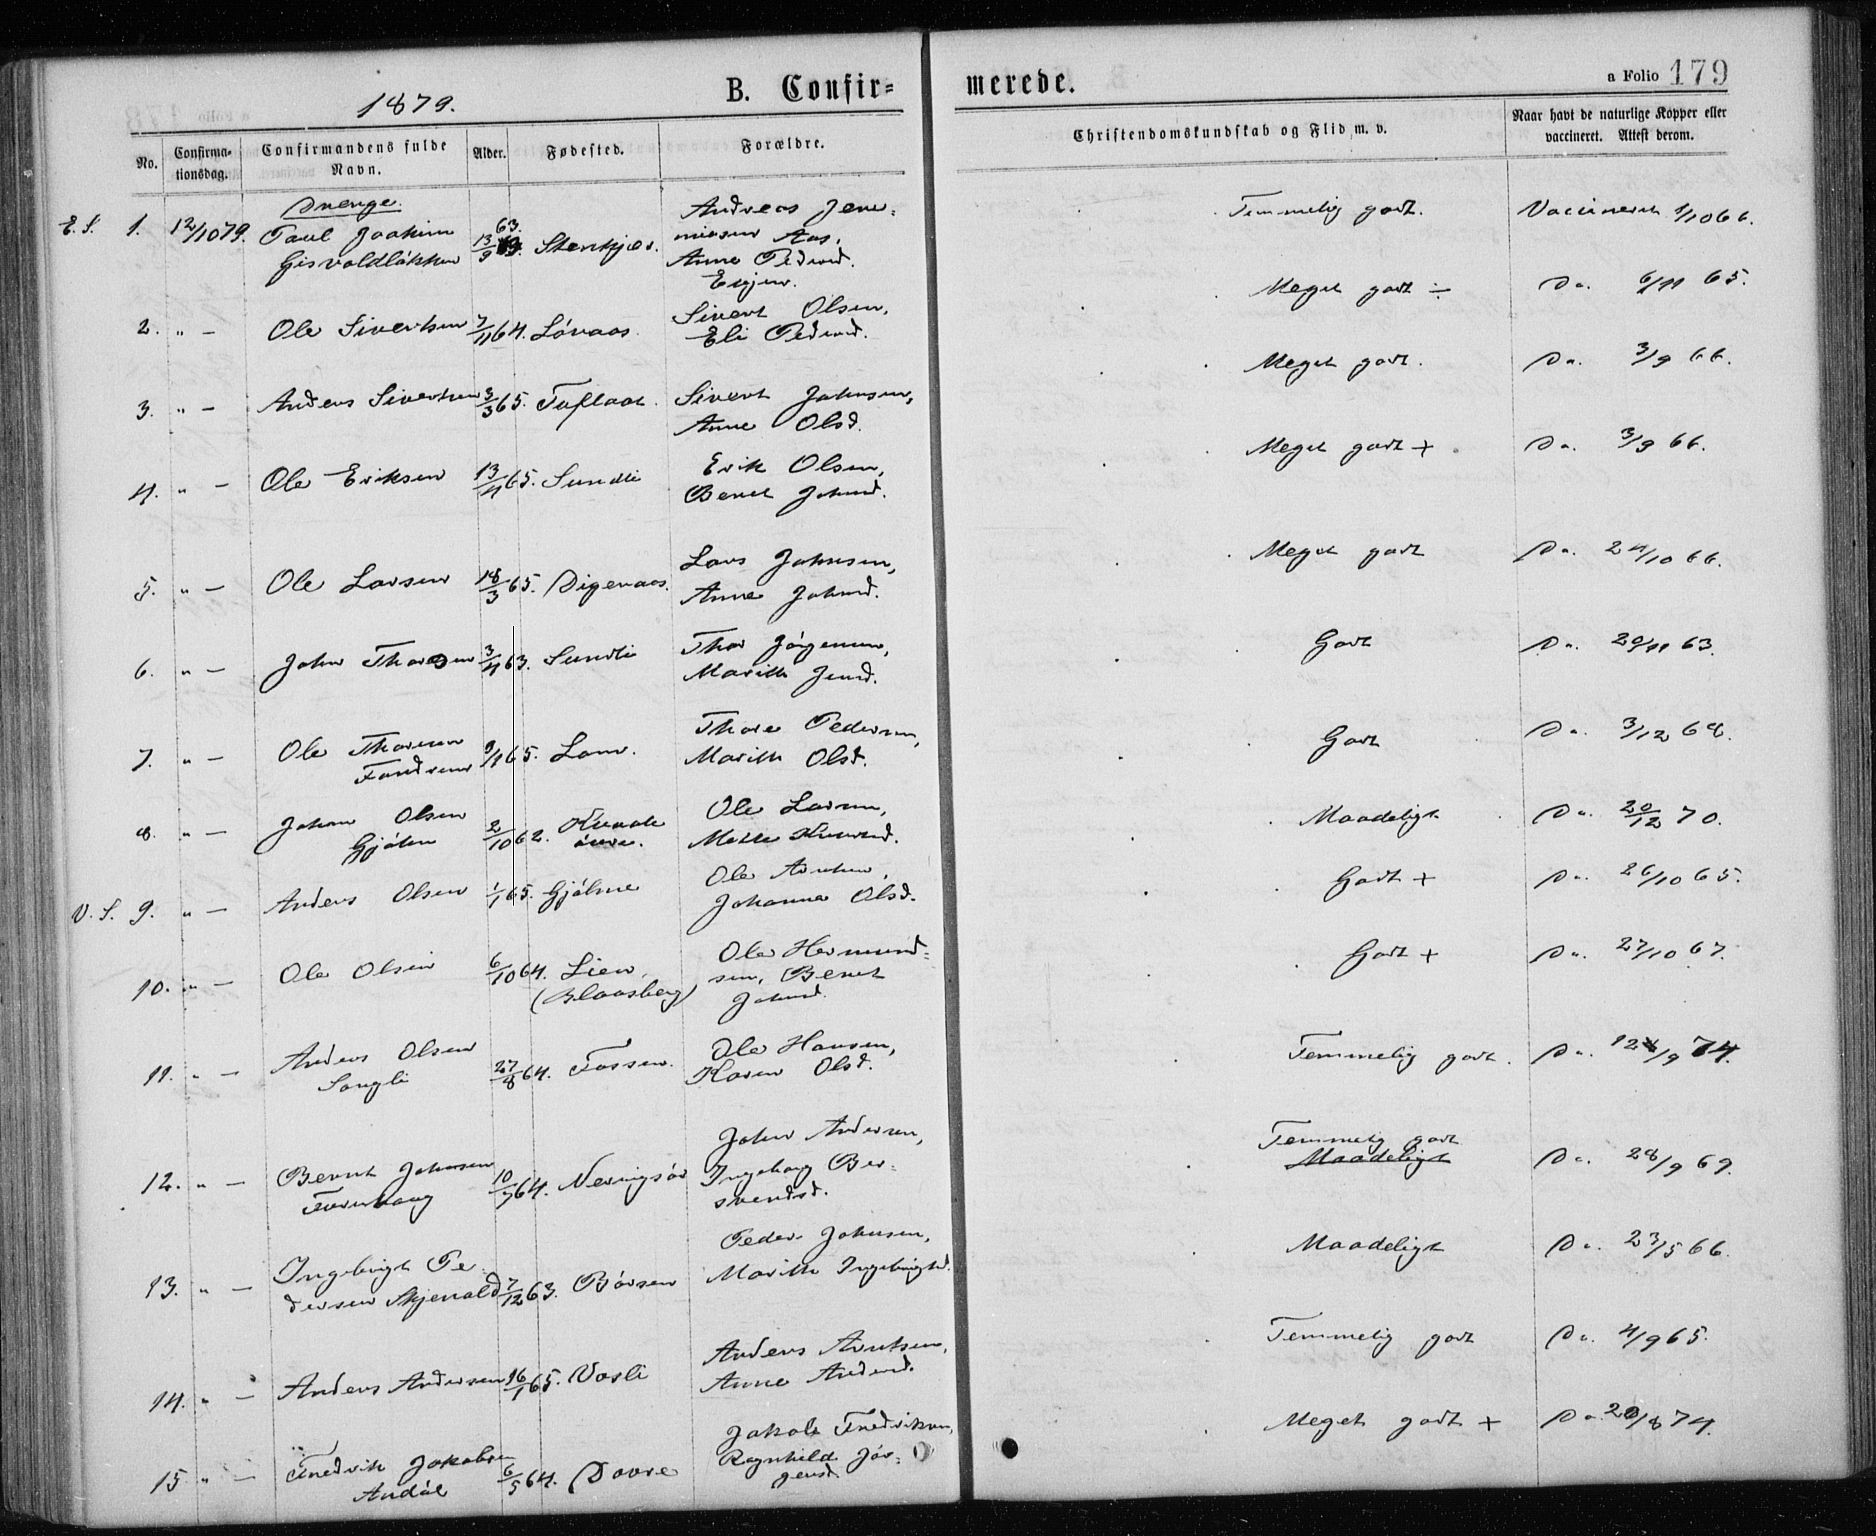 1879.
B. Confir=
merede.
a Folio 179
No.
Confirma-
tionsdag.
Confirmandens fulde
Navn.
Alder.
Fødested.
Forældre.
Christendomskundskab og Flid m. v.
Naar havt de naturlige Kopper eller
vaccineret. Attest derom.
Drenge.
E. S. 1. 12/10 79. Paul Joakim 13/9 63. Stenkjær. Andreas Jere=
Gisvoldløkken miasen Aas,
Anne Pedersd.
Temmelig godt. Vaccineret 1/10 66.
2. " — Ole Sivertsen 7/11 64. Løvaas. Sivert Olsen,
Eli Pedersd.
Meget godt ÷ Do. 6/11 65.
3. " — Anders Sivertsen 3/3 65. Tuflaat. Sivert Johnsen,
Anne Olsd.
Meget godt. Do. 3/9 66.
4. " — Ole Eriksen 13/4 65. Sundli Erik Olsen,
Beret Johnsd.
Meget godt + Do. 3/9 66.
5. " — Ole Larsen 18/3 65. Digeraas. Lars Johnsen,
Anne Johnsd.
Meget godt Do. 24/10 66.
6. " — John Thoresen 3/4 63. Sundli Thor Jørgensen,
Marith Jensd.
Godt Do. 20/11 63.
7. " — Ole Thoresen 9/1 65. Lom. Thore Pedersen,
Marith Olsd.
Godt Do. 3/12 68.
8. " — Johan Olsen 2/10 62. Ole Larsen,
Mette
Maadeligt Do. 20/12 70.
V. S. 9. " — Anders Olsen 1/1 65. Gjølme Ole Arntsen,
Johanna Olsd.
Godt + Do. 26/10 65.
10. " — Ole Olsen 6/10 64. Lien, Ole Hermund=
(Blaasberg) sen, Beret
Johnsd.
Godt + Do. 27/10 67.
11. " — Anders Olsen 27/8 64. Fossen. Ole Hansen,
Songli Karen Olsd.
Temmelig godt. Do. 12/9 74.
12. " — Bernt Johnsen 10/7 64. John Andersen,
Ingeborg Ber=
svendsd.
Temmelig godt
Maadeligt Do. 28/9 69.
13. " — Ingebrigt Pe- 7/12 63. Børsen Peder Johnsen,
dersen Skjenald Marith Ingebrigtsd.
Maadeligt Do. 23/5 66.
14. " — Anders Andersen 16/1 65. Vasli Anders Arntsen,
Anne Andersd.
Temmelig godt Do. 4/9 65.
15 " — Fredrik Jakobsen 6/5 64. Dovre Jakob Fredriksen,
Ragnhild Jør=
gensd.
Meget godt + Do. 20/8 74.